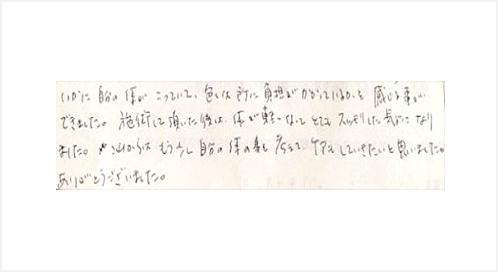 いかに自分の体がこっていて、色々な所に負担がかかっているかを感じる事が
できました。施術して頂いた後は、体が軽くなってとてもスッキリした気分になり
ました。これからはもう少し自分の体の事も考えて、ケアもしていきたいと思いました。
ありがとうございました。